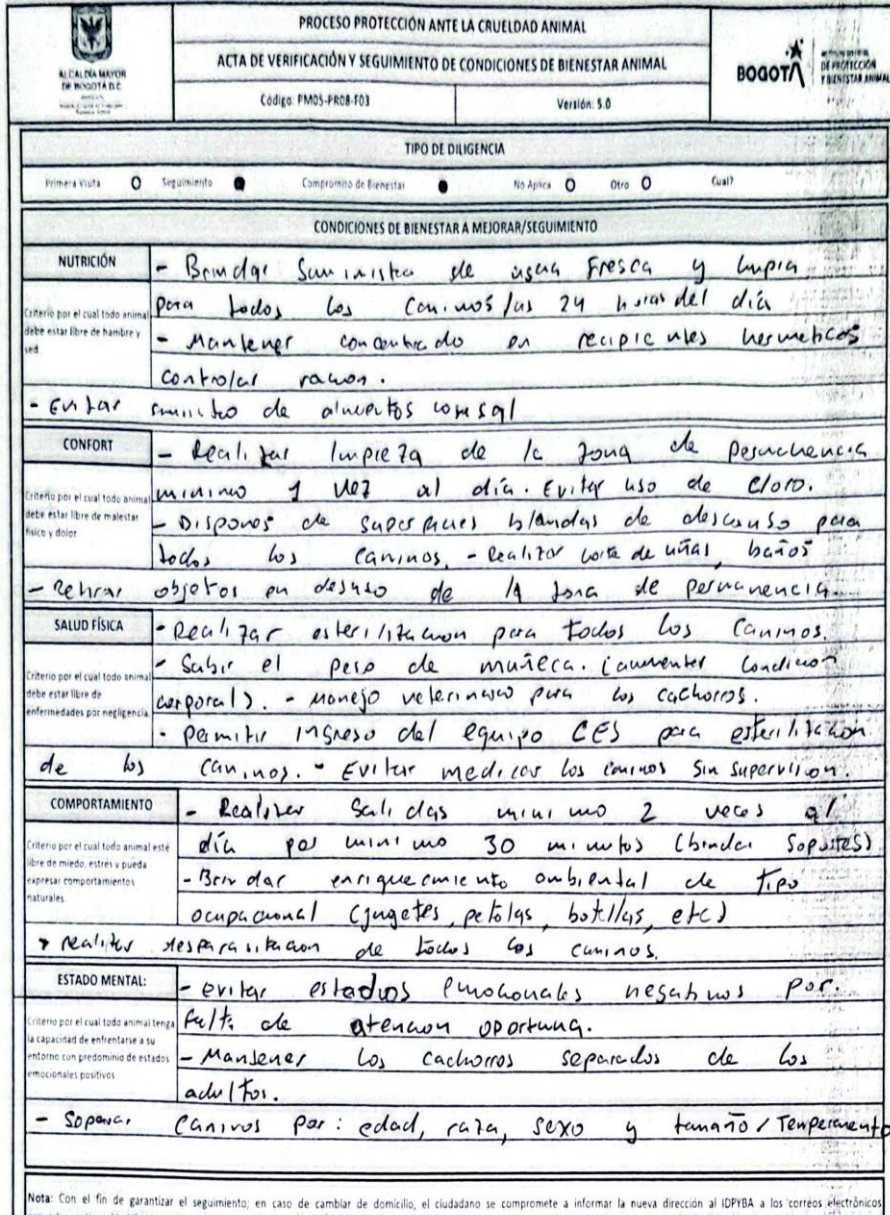 ALCALDÍA MAYOR
DE BOGOTÁ D.C.
PROCESO PROTECCIÓN ANTE LA CRUELDAD ANIMAL
ACTA DE VERIFICACIÓN Y SEGUIMIENTO DE CONDICIONES DE BIENESTAR ANIMAL
Código: PM05-PR08-F03 Versión: 5.0
BOGOTÁ
DE PROTECCIÓN
Y BIENESTAR ANIMAL
TIPO DE DILIGENCIA
Primera Visita Seguimiento Compromiso de Bienestar No Aplica Otro Cual?
CONDICIONES DE BIENESTAR A MEJORAR/SEGUIMIENTO
NUTRICIÓN
Criterio por el cual todo animal
debe estar libre de hambre y
sed
- Brindar suministro de agua fresca y limpia
para todos los caninos las 24 horas del día
- Mantener concentrado en recipientes hermeticos
controlar racion.
- Evitar suministro de alimentos con sal
CONFORT
Criterio por el cual todo animal
debe estar libre de malestar
físico y dolor
- Realizar limpieza de la zona de permanencia
minimo 1 vez al día. Evitar uso de cloro.
- Disponer de superficies blandas de descanso para
todos los caninos. - Realizar corte de uñas, baños
- Retirar objetos en desuso de la zona de permanencia.
SALUD FÍSICA
Criterio por el cual todo animal
debe estar libre de
enfermedades por negligencia
- Realizar esterilizacion para todos los caninos.
- Subir el peso de muñeca. (aumentar condicion
corporal). - Manejo veterinario para los cachorros.
- Permitir ingreso del equipo CES para esterilizacion
de los caninos. - Evitar medicar los caninos sin supervision.
COMPORTAMIENTO
Criterio por el cual todo animal esté
libre de miedo, estrés y pueda
expresar comportamientos
naturales
- Realizar salidas minimo 2 veces al
día por minimo 30 minutos (brindar soportes)
- Brindar enriquecimiento ambiental de tipo
ocupacional (jugetes, pelotas, botellas, etc)
realizar desparasitacion de todos los caninos.
ESTADO MENTAL:
Criterio por el cual todo animal tenga
la capacidad de enfrentarse a su
entorno con predominio de estados
emocionales positivos
- evitar estados emocionales negativos por
falta de atencion oportuna.
- Mantener los cachorros separados de los
adultos.
- Separar caninos por: edad, raza, sexo y tamaño / Temperamento
Nota: Con el fin de garantizar el seguimiento; en caso de cambiar de domicilio, el ciudadano se compromete a informar la nueva dirección al IDPYBA a los correos electrónicos